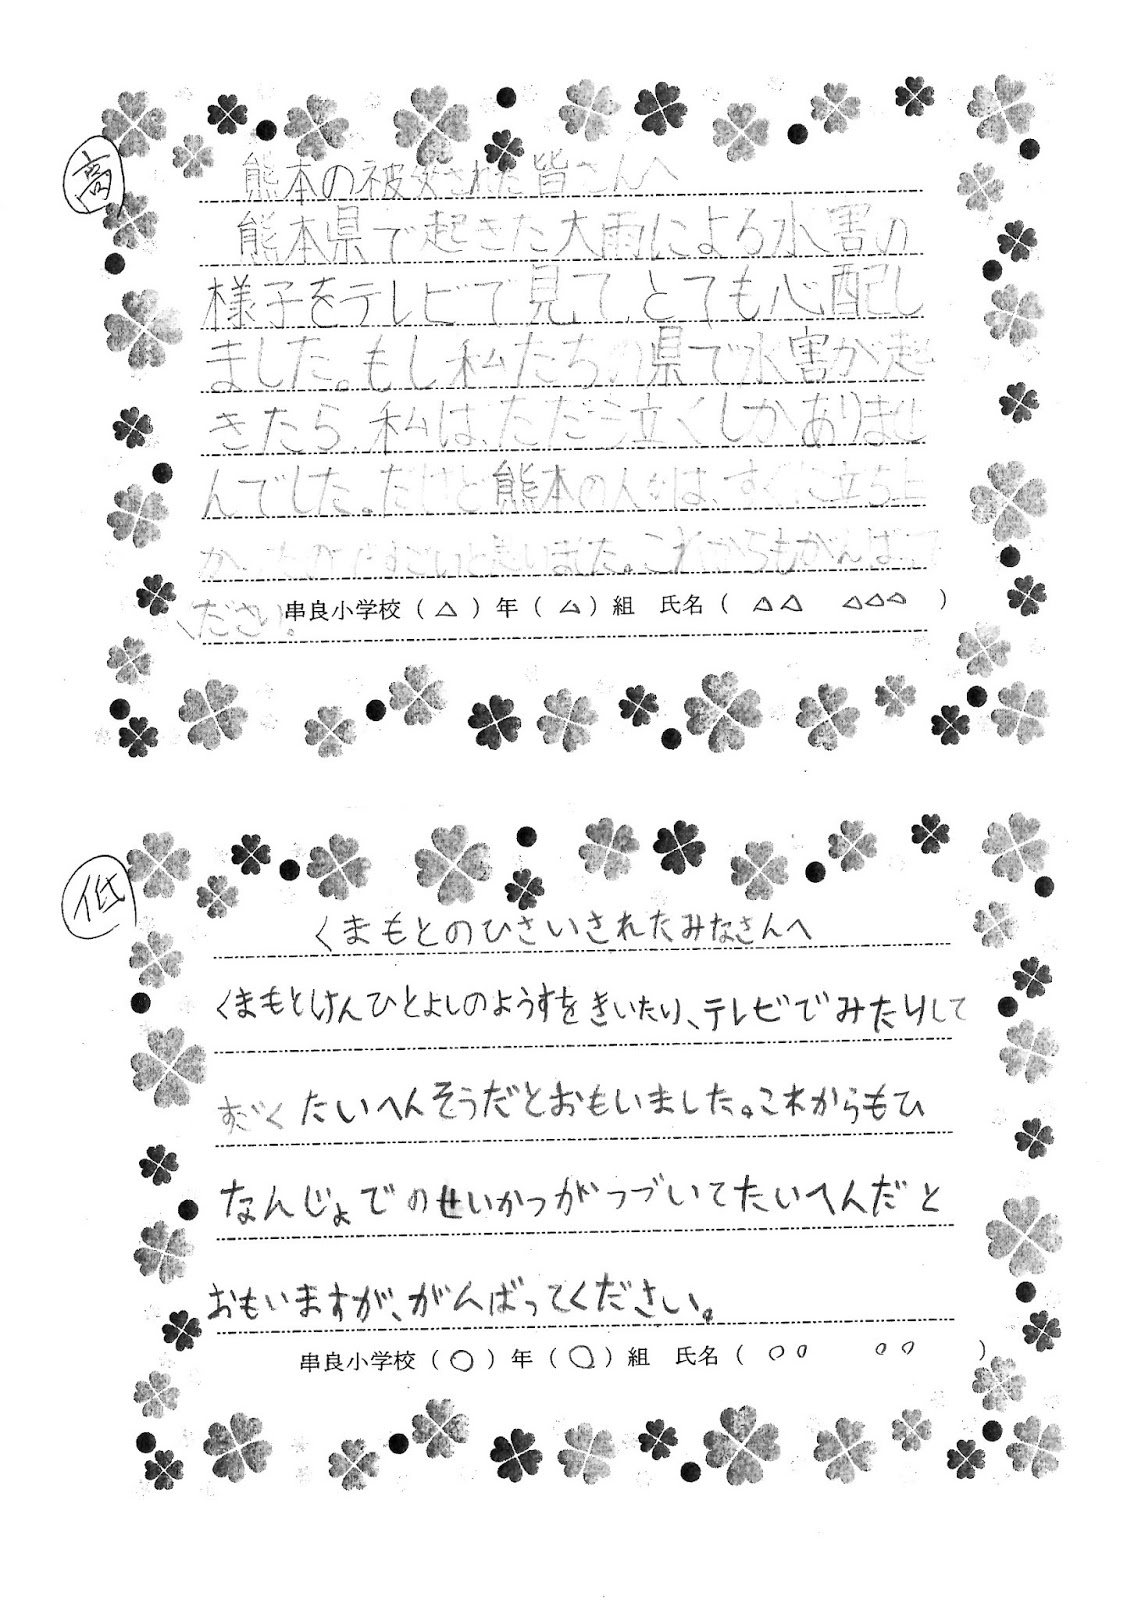 高
熊本の被災された皆さんへ
熊本県で起きた大雨による水害の
様子をテレビで見て、とても心配し
ました。もし私たちの県で水害が起
きたら、私は、ただ立くしかありませ
んでした。だけど熊本の人たちは、すぐに立ち上
がったのですごいと思いました。これからもがんばって
ください。
串良小学校（△）年（△）組 氏名（ △△ △△△ ）
低
くまもとのひさいされたみなさんへ
くまもとけんひとよしのようすをきいたり、テレビでみたりして
すごく たいへんそうだとおもいました。これからもひ
なんじょでのせいかつがつづいてたいへんだと
おもいますが、がんばってください。
串良小学校（○）年（○）組 氏名（ ○○ ○○ ）